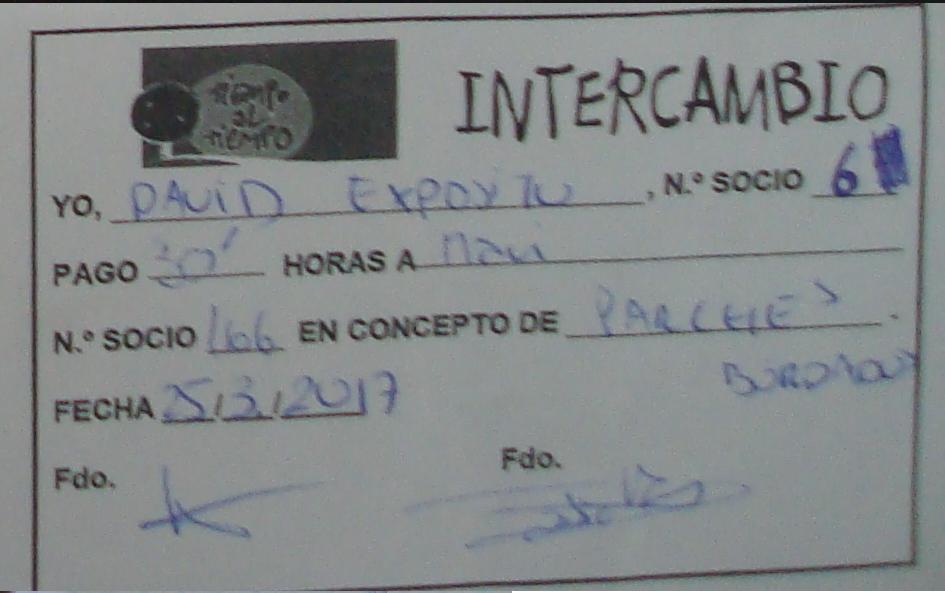 tiempo
al
tiempo
INTERCAMBIO
YO, DAVID EXPOXITU, N.º SOCIO 6
PAGO 30' HORAS A Mavi
N.º SOCIO 166 EN CONCEPTO DE PARCHES.
BORDADOS
FECHA 25/3/2017
Fdo. Fdo.